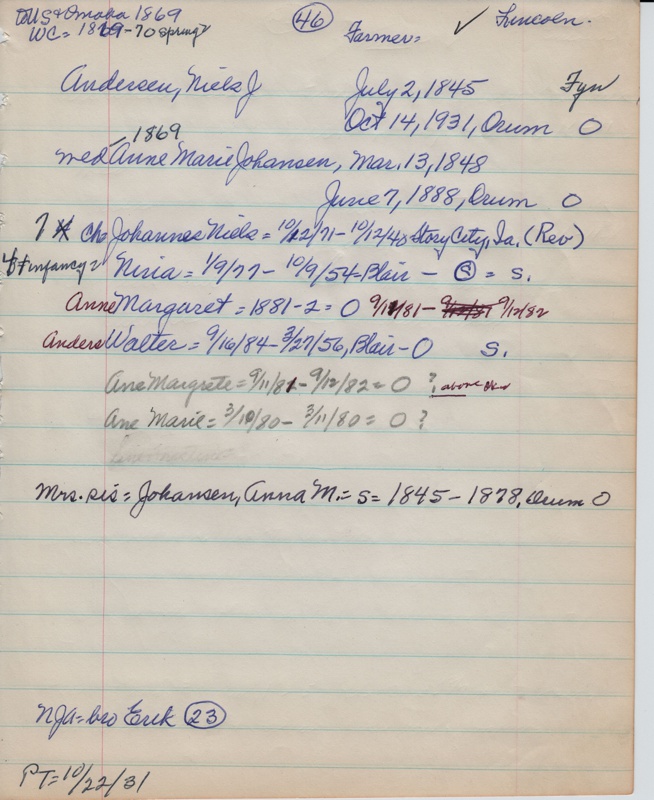 US & Omaha 1869 46 Farmer= ✓ Lincoln.
WC= 1869-70 spring?
Andersen, Niels J July 2, 1845 Fyn
Oct 14, 1931, Orum O
1869
wed Anne Marie Johansen, Mar. 13, 1848
June 7, 1888, Orum O
7 Ch Johannes Niels = 10/12/71 - 10/12/48 Story City, Ia. (Rev)
infancy? Niria = 1/9/77 - 10/9/54-Blair - S = S.
Anne Margaret = 1881-2 = O 9/11/81 - 9/12/82
Anders Walter = 9/16/84 - 3/27/56, Blair - O S.
Ane Margrete = 9/11/81 - 9/12/82 = O ? above
Ane Marie = 3/10/80 - 3/11/80 = O ?
Mrs. sis = Johansen, Anna M. = S = 1845 - 1878, Orum O
NJA = bro Erik 23
PT = 10/22/31